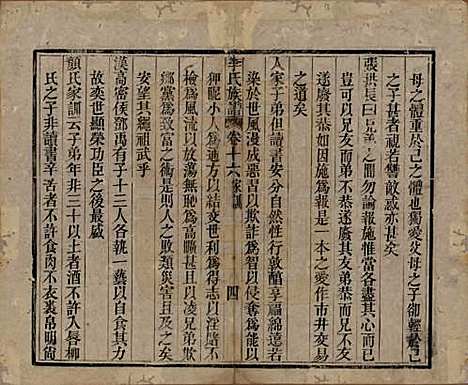 母之體重於己之體也獨愛父母之子卻輕於己
之子甚者視若讐敵惑亦甚矣
張洪長曰兄弟之間勿論報施惟當各盡其心而已
豈可以兄友而弟不恭遂廢其友弟恭而兄不友
遂廢其恭因施為報是一本之愛作市井交易
之道矣
人家子弟但讀書安分自然性行敦醇享福綿遠若
染於世風漫成惡習以欺詐為智以侵奪為能以
狎昵小人為適方以結交世利為得志以淫賭不
檢為風流以放蕩無恥為高曠以健訟為豪以武斷
鄉黨為致富之術是則人之類災害且及之矣
安望其繩祖武乎
李氏族譜 卷十六 家訓 四
漢高密侯鄧禹有子十三人各執一藝以自食其力
故奕世顯榮功臣之後最盛
顏氏家訓云子弟年非三十以上者酒不許入唇柳
氏之子非讀書辛苦者不許食肉不衣裘帛明尚